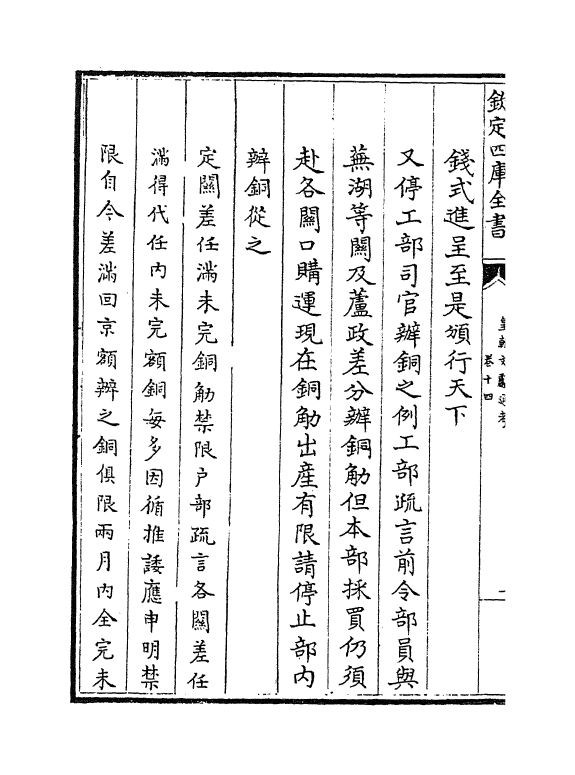 欽定四庫全書
皇朝文獻通考
卷十四
二
錢式進呈至是頒行天下
又停工部司官辦銅之例工部疏言前令部員與
蕪湖等關及蘆政差分辦銅觔但本部採買仍須
赴各關口購運現在銅觔出産有限請停止部內
辦銅從之
定關差任滿未完銅觔禁限户部疏言各關差任
滿得代任內未完額銅每多因循推諉應申明禁
限自今差滿回京額辦之銅俱限兩月內全完未